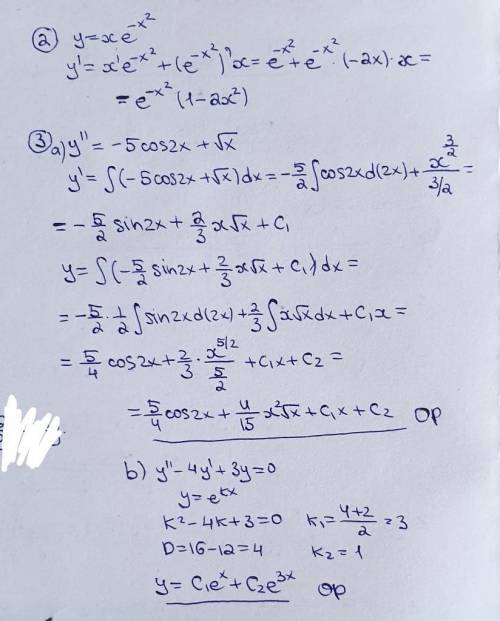 ② y=xe^{-x²}
y'=x'e^{-x²}+(e^{-x²})'x=e^{-x²}+e^{-x²}·(-2x)·x=
=e^{-x²}(1-2x²)
③ a) y''=-5cos2x+√x
y'=∫(-5cos2x+√x)dx=-5/2∫cos2xd(2x)+x^{3/2}/3/2=
=-5/2 sin2x+2/3 x√x+C₁
y=∫(-5/2 sin2x+2/3 x√x+C₁)dx=
=-5/2·1/2∫sin2xd(2x)+2/3∫x√xdx+C₁x=
=5/4 cos2x+2/3·x^{5/2}/5/2+C₁x+C₂=
=5/4 cos2x+4/15 x²√x+C₁x+C₂ ОР
b) y''-4y'+3y=0
y=e^{kx}
k²-4k+3=0 k₁=4+2/2=3
D=16-12=4 k₂=1
y=C₁e^x+C₂e^{3x} ОР